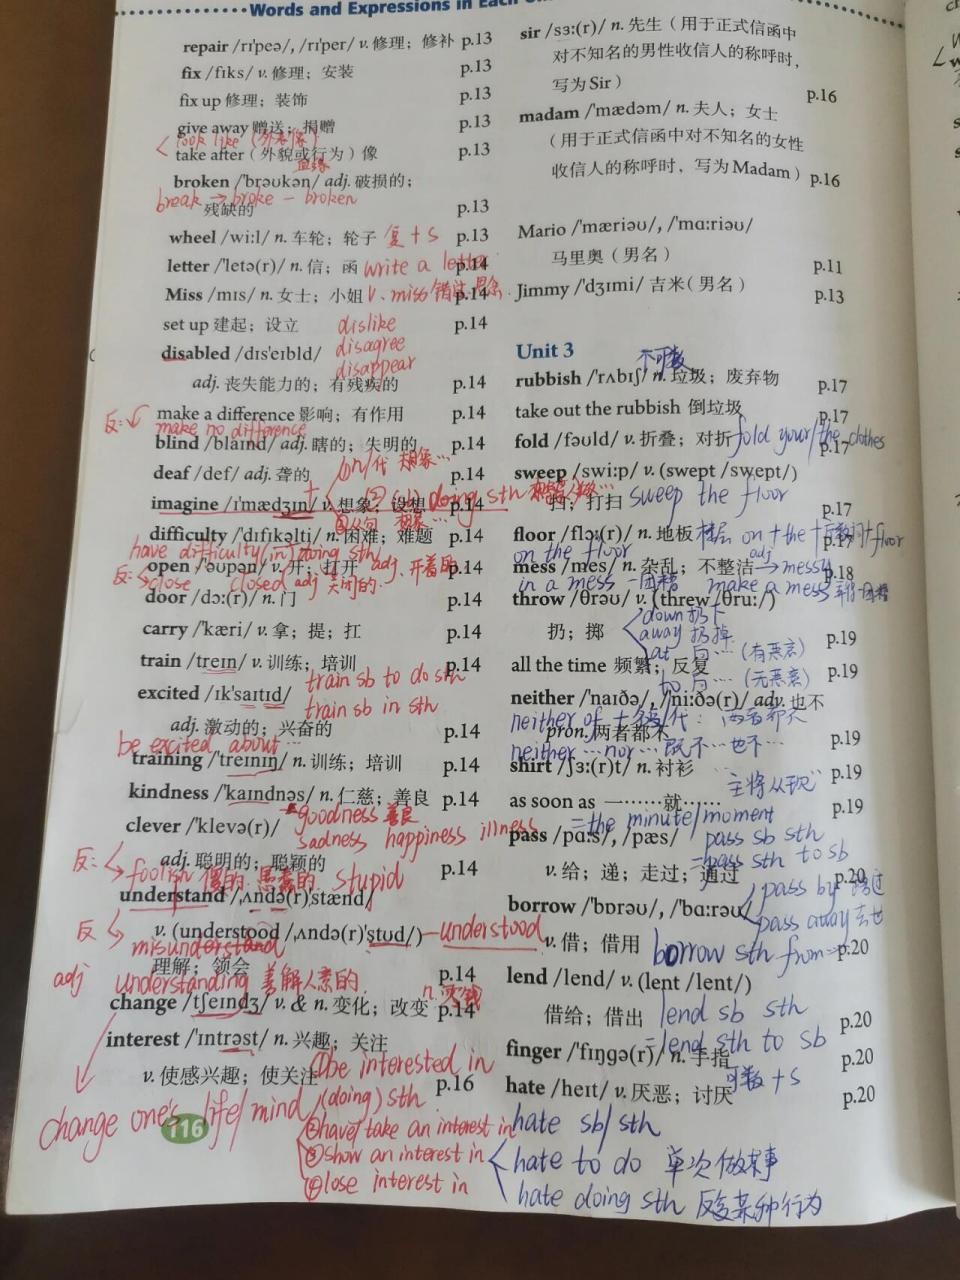 Words and Expressions in Each
repair /rɪ'peə/, /rɪ'per/ v. 修理；修补 p.13
fix /fɪks/ v. 修理；安装 p.13
fix up 修理；装饰 p.13
give away 赠送；捐赠 p.13
look like (外表像)
take after（外貌或行为）像 p.13
血缘
broken /'brəʊkən/ adj. 破损的；
break → broke – broken
残缺的 p.13
wheel /wiːl/ n. 车轮；轮子 p.13
复 + s
letter /'letə(r)/ n. 信；函 p.14
write a letter
Miss /mɪs/ n. 女士；小姐 p.14
v. miss 错过
set up 建起；设立 p.14
dislike
disabled /dɪs'eɪbld/
disagree
disappear
adj. 丧失能力的；有残疾的 p.14
make a difference 影响；有作用 p.14
反: make no difference
blind /blaɪnd/ adj. 瞎的；失明的 p.14
deaf /def/ adj. 聋的 p.14
imagine /ɪ'mædʒɪn/ v. 想象；设想 p.14
doing sth
difficulty /'dɪfɪkəlti/ n. 困难；难题 p.14
have difficulty (in) doing sth
open /'əʊpən/ v. 开；打开 p.14
adj. 开着的
反: close closed adj 关闭的
door /dɔː(r)/ n. 门 p.14
carry /'kæri/ v. 拿；提；扛 p.14
train /treɪn/ v. 训练；培训 p.14
train sb to do sth
excited /ɪk'saɪtɪd/
train sb in sth
adj. 激动的；兴奋的 p.14
be excited about ...
training /'treɪnɪŋ/ n. 训练；培训 p.14
kindness /'kaɪndnəs/ n. 仁慈；善良 p.14
goodness 善良
clever /'klevə(r)/
sadness happiness illness
adj. 聪明的；聪颖的 p.14
反: foolish 傻的 愚蠢的 stupid
understand /ˌʌndə(r)'stænd/
v. (understood /ˌʌndə(r)'stʊd/) understood
反 misunderstand
理解；领会 p.14
adj understanding 善解人意的
change /tʃeɪndʒ/ v. & n. 变化；改变 p.14
interest /'ɪntrəst/ n. 兴趣；关注
v. 使感兴趣；使关注 p.16
①be interested in
(doing) sth
change one's life/mind
②have/take an interest in
③show an interest in
④lose interest in
116
sir /sɜː(r)/ n. 先生（用于正式信函中
对不知名的男性收信人的称呼时，
写为 Sir） p.16
madam /'mædəm/ n. 夫人；女士
（用于正式信函中对不知名的女性
收信人的称呼时，写为 Madam） p.16
Mario /'mæriəʊ/, /'mɑːriəʊ/
马里奥（男名） p.11
Jimmy /'dʒɪmi/ 吉米（男名） p.13
Unit 3
不可数
rubbish /'rʌbɪʃ/ n. 垃圾；废弃物 p.17
take out the rubbish 倒垃圾 p.17
fold /fəʊld/ v. 折叠；对折 p.17
fold your/the clothes
sweep /swiːp/ v. (swept /swept/)
扫；打扫 p.17
sweep the floor
floor /flɔː(r)/ n. 地板 p.17
on the floor
mess /mes/ n. 杂乱；不整洁 p.18
adj → messy
in a mess 一团糟 make a mess
throw /θrəʊ/ v. (threw /θruː/)
down 扔下
扔；掷 p.19
away 扔掉
at 向… (有恶意)
all the time 频繁；反复 p.19
to 向… (无恶意)
neither /'naɪðə/, /'niːðə(r)/ adv. 也不
neither of
pron. 两者都不 p.19
neither … nor … 既不…也不…
shirt /ʃɜː(r)t/ n. 衬衫 p.19
主将从现
as soon as 一……就…… p.19
=the minute/moment
pass /pɑːs/, /pæs/
pass sb sth
=pass sth to sb
v. 给；递；走过；通过 p.20
pass by 路过
borrow /'bɒrəʊ/, /'bɑːrəʊ/
pass away 去世
v. 借；借用 p.20
borrow sth from
lend /lend/ v. (lent /lent/)
借给；借出 p.20
lend sb sth
=lend sth to sb
finger /'fɪŋgə(r)/ n. 手指 p.20
可数 + s
hate /heɪt/ v. 厌恶；讨厌 p.20
hate sb/sth
hate to do 单次做某事
hate doing sth 反复某种行为